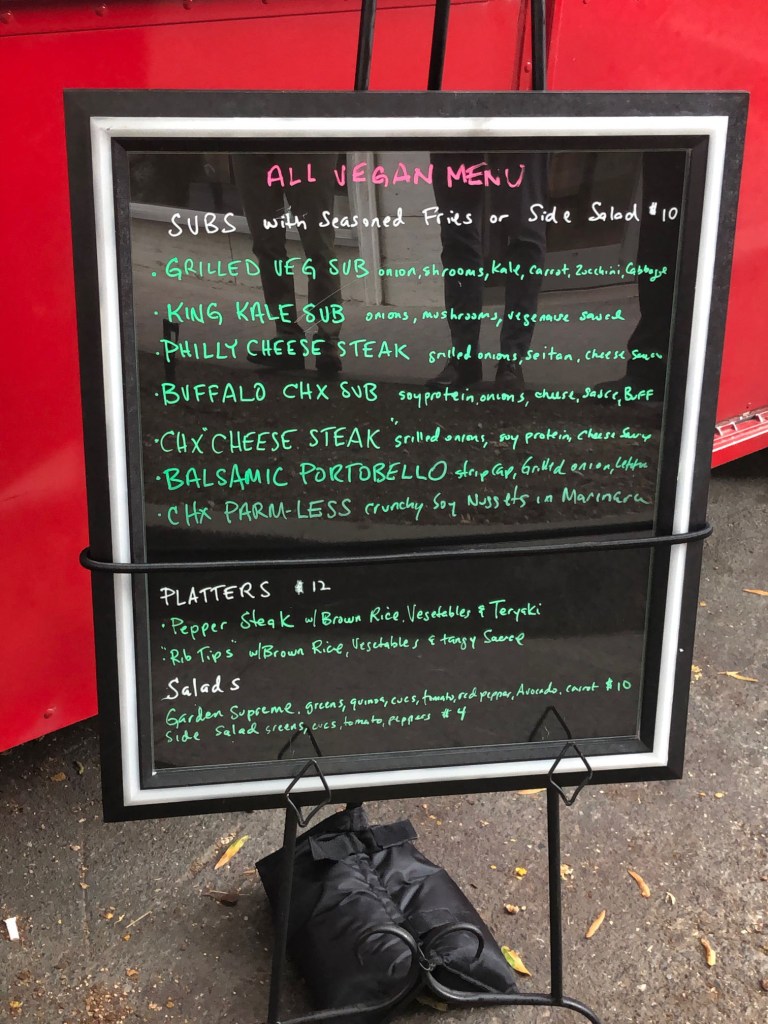 ALL VEGAN MENU
SUBS with Seasoned Fries or Side Salad $10
• GRILLED VEG SUB onion, shrooms, Kale, carrot, Zucchini, Cabbage
• KING KALE SUB onions, mushrooms, vegenaise sauce
• PHILLY CHEESE STEAK grilled onions, seitan, cheese Sauce
• BUFFALO CHX SUB soy protein, onions, cheese, Sauce, BUFF
• CHX "CHEESE STEAK" grilled onions, soy protein, Cheese Sauce
• BALSAMIC PORTOBELLO strip Cap, Grilled onion,
• CHX PARM-LESS crunchy Soy Nuggets in Marinara
PLATTERS $12
• Pepper Steak w/Brown Rice, Vegetables & Teryaki
"Rib Tips" w/Brown Rice, Vegetables & tangy Sauce
Salads
Garden Supreme, greens, quinoa, cucs, tomato, red pepper, Avocado, carrot $10
Side Salad greens, cucs, tomato, peppers $4